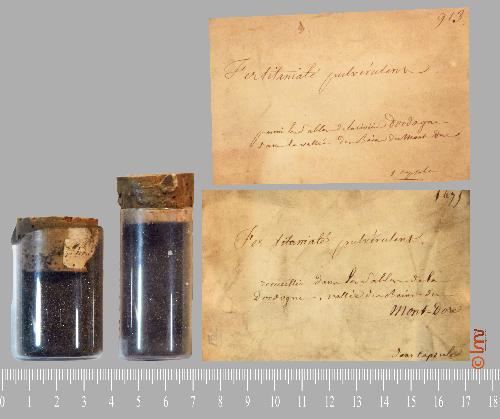 913
Fer titaniaté pulvérulent
parmi les sables de la rivière Dordogne
dans la vallée des Bains du Mont-Dore
1 capsule
Fer titaniaté pulvérulent.
recueilli dans les sables de la
Dordogne, vallée des Bains du
Mont-Dore
deux capsules
© lmv
0 1 2 3 4 5 6 7 8 9 10 11 12 13 14 15 16 17 18